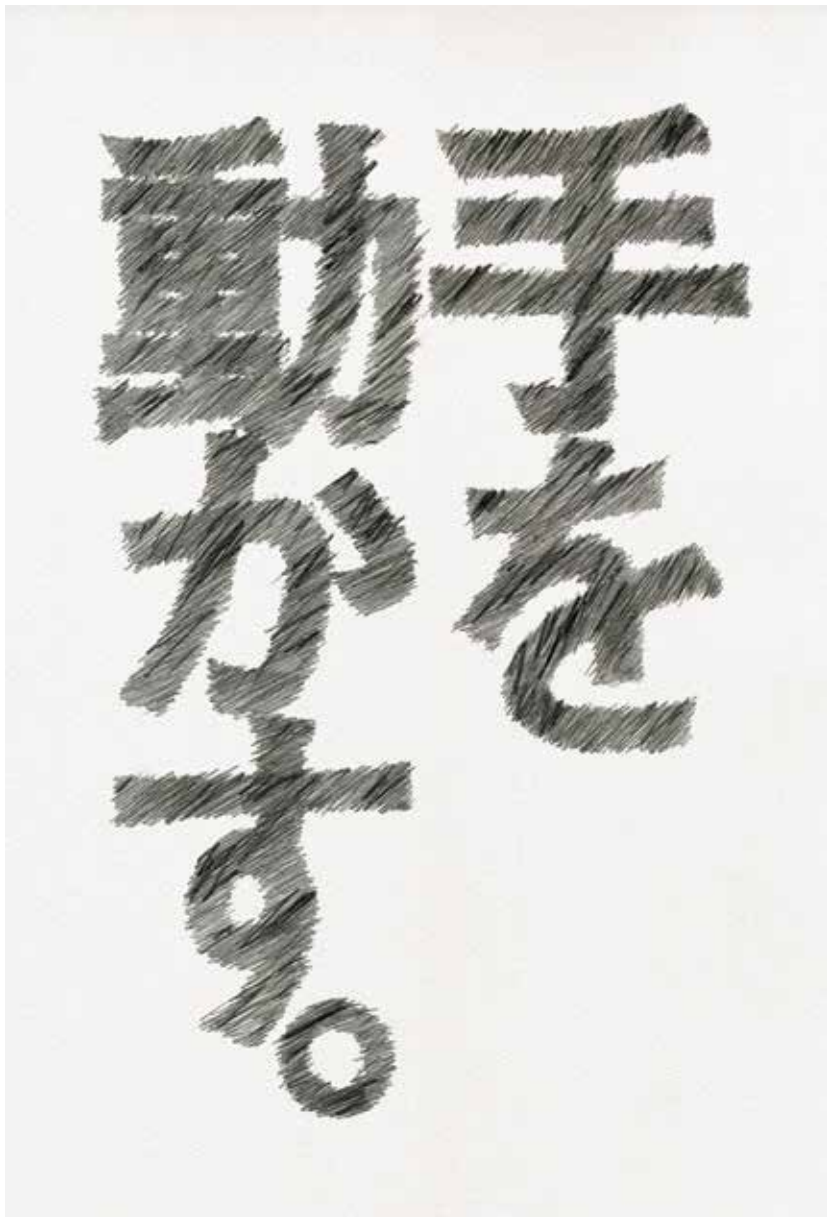 手を
動かす。